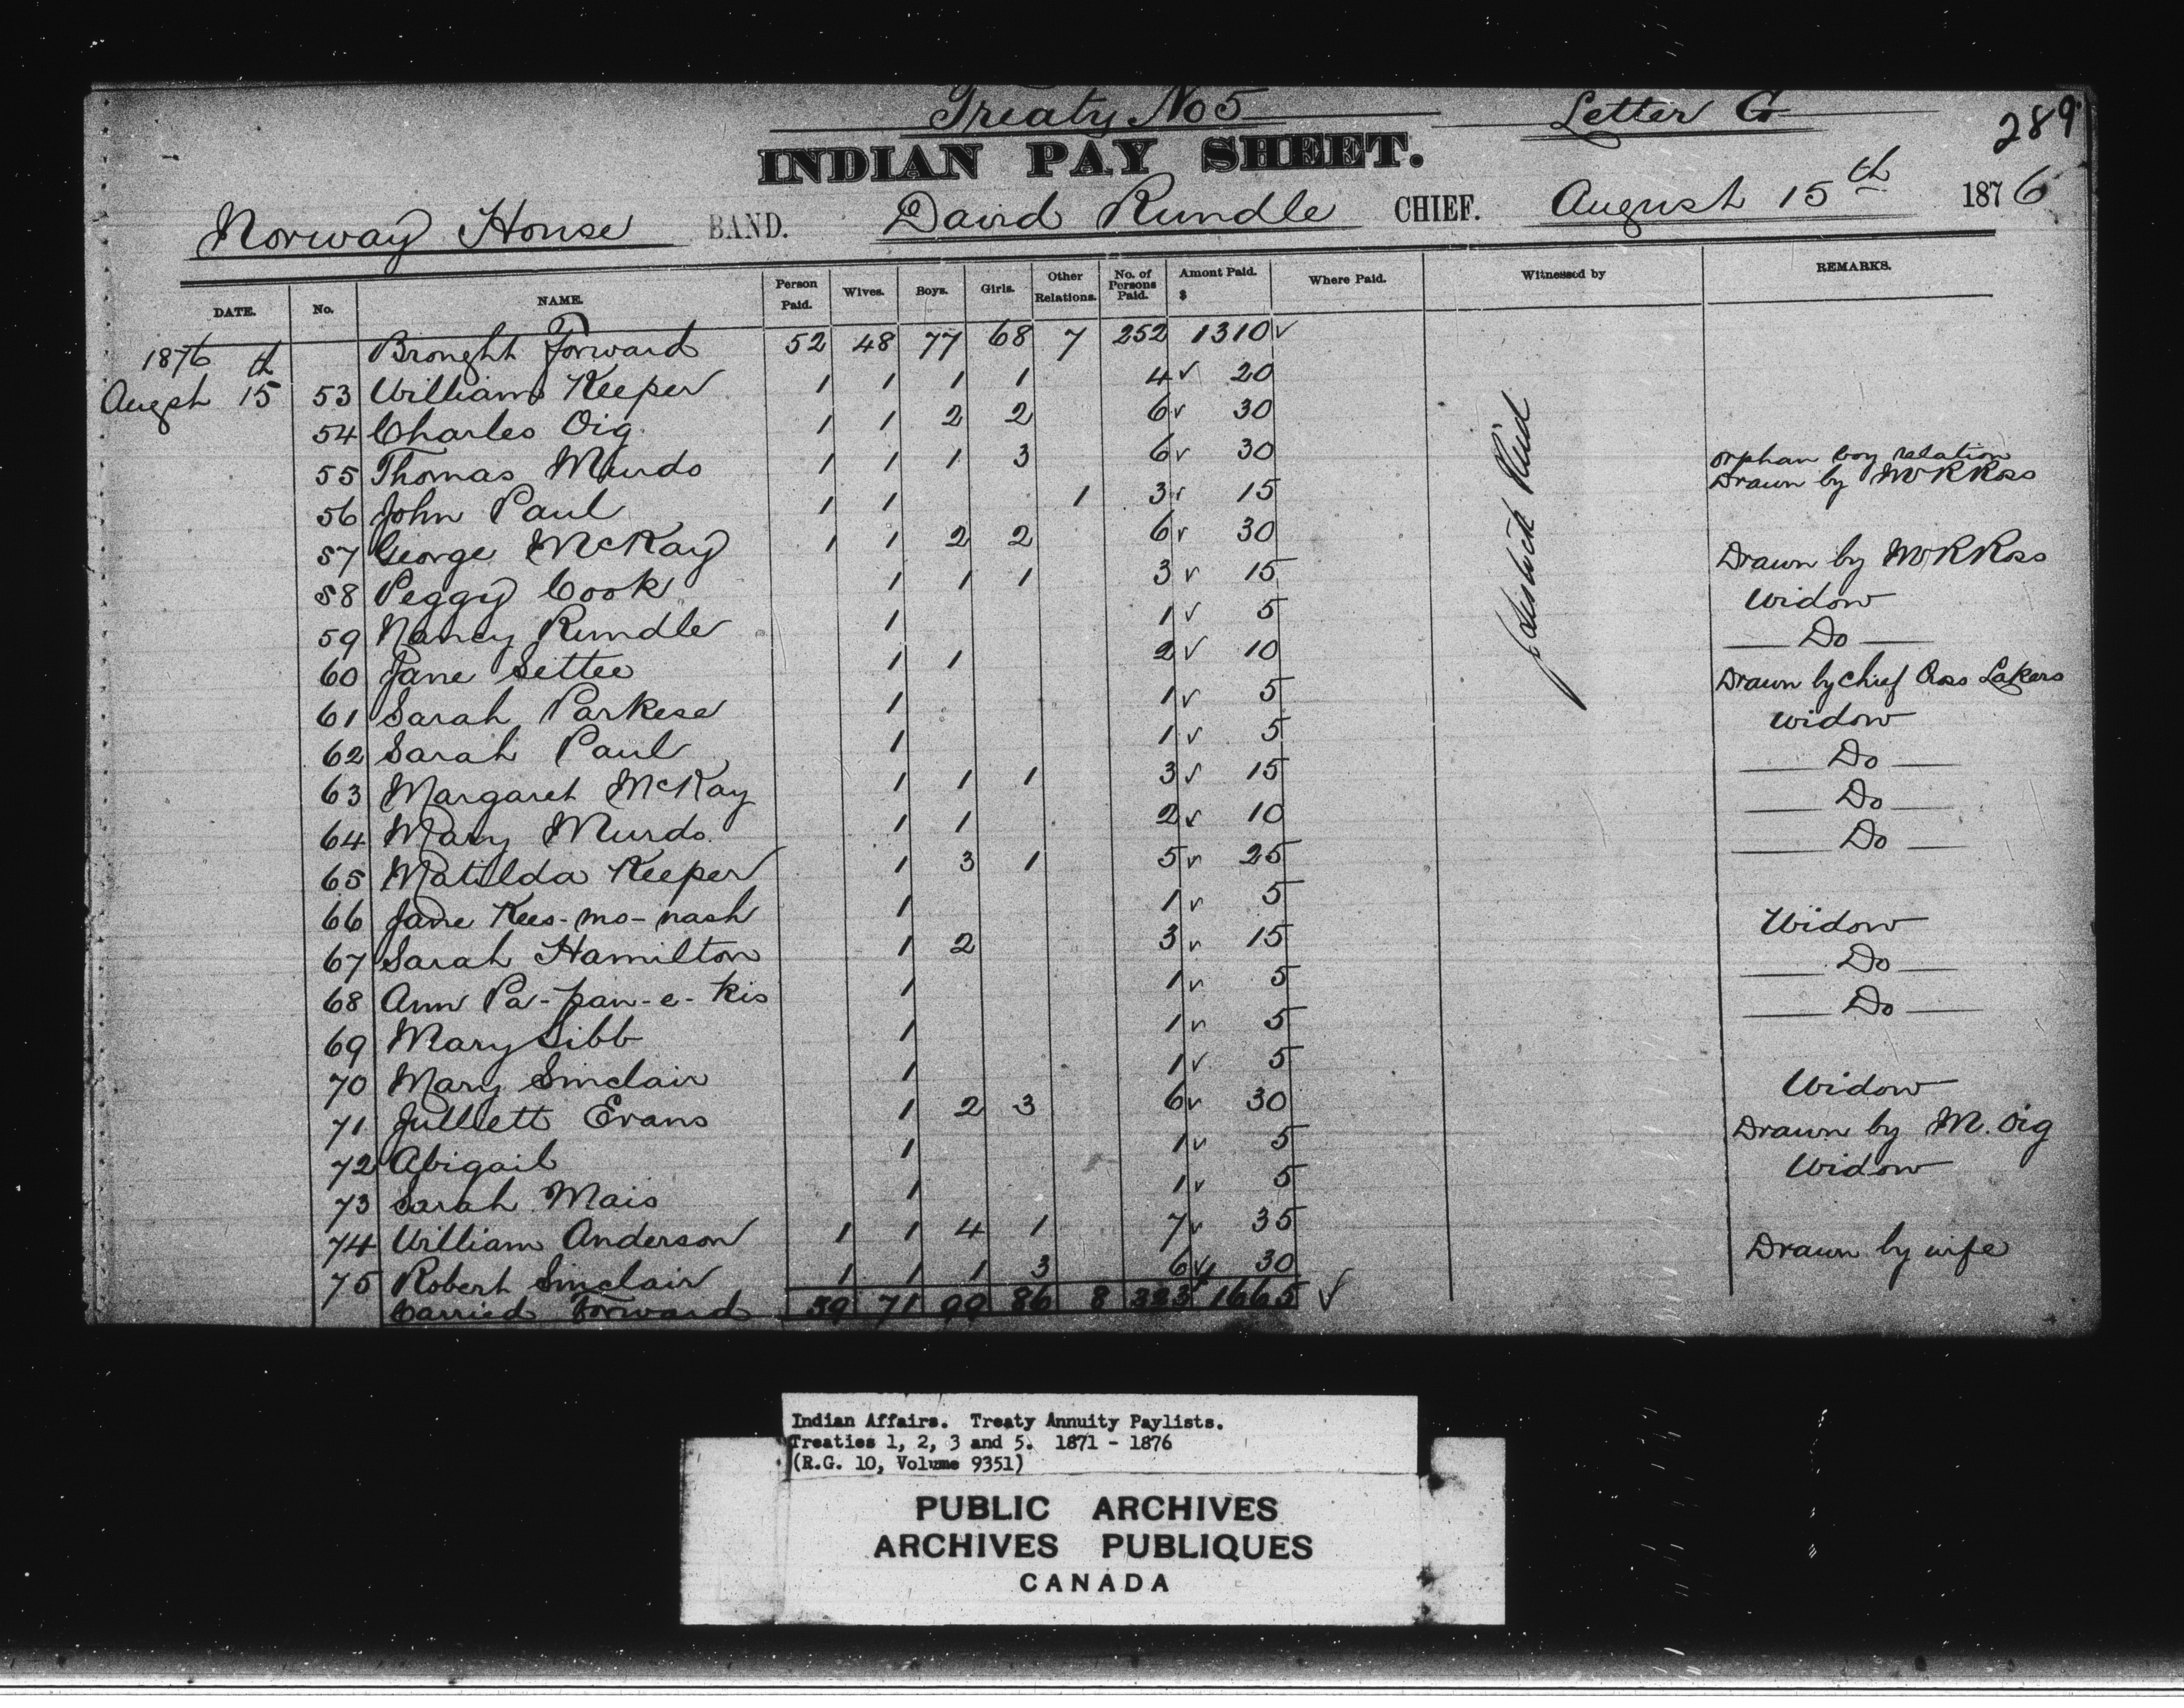 Treaty No 5 Letter G 289
INDIAN PAY SHEET.
Norway House BAND. David Rundle CHIEF. August 15th 1876
DATE. No. NAME. Person Paid. Wives. Boys. Girls. Other Relations. No. of Persons Paid. Amont Paid. $ Where Paid. Witnessed by REMARKS.
1876 Brought Forward 52 48 77 68 7 252 1310 ✓
Augst 15th 53 William Keeper 1 1 1 1 4 ✓ 20
54 Charles Oig 1 1 2 2 6 ✓ 30
55 Thomas Murdo 1 1 1 3 6 ✓ 30
orphan boy relation
56 John Paul 1 1 1 3 ✓ 15 Drawn by W R Ross
57 George McKay 1 1 2 2 6 ✓ 30
58 Peggy Cook 1 1 1 3 ✓ 15 Drawn by W R Ross
59 Nancy Rundle 1 1 ✓ 5 Widow
60 Jane Settee 1 1 2 ✓ 10 Do
61 Sarah Parkese 1 1 ✓ 5 Drawn by Chief Cross Lakers
62 Sarah Paul 1 1 ✓ 5 Widow
63 Margaret McKay 1 1 1 3 ✓ 15 Do
64 Mary Murdo 1 1 2 ✓ 10 Do
65 Matilda Keeper 1 3 1 5 ✓ 25 Do
66 Jane Kees-mo-nash 1 1 ✓ 5
67 Sarah Hamilton 1 2 3 ✓ 15 Widow
68 Ann Pa-pan-e-kis 1 1 ✓ 5 Do
69 Mary Sibb 1 1 ✓ 5 Do
70 Mary Sinclair 1 1 ✓ 5
71 Julliett Evans 1 2 3 6 ✓ 30 Widow
72 Abigail 1 1 ✓ 5 Drawn by M. Oig
73 Sarah Mais 1 1 ✓ 5 Widow
74 William Anderson 1 1 4 1 7 ✓ 35
75 Robert Sinclair 1 1 1 3 6 ✓ 30 Drawn by wife
Carried Forward 59 71 99 86 8 323 1665 ✓
Indian Affairs. Treaty Annuity Paylists.
Treaties 1, 2, 3 and 5. 1871 - 1876
(R.G. 10, Volume 9351)
PUBLIC ARCHIVES
ARCHIVES PUBLIQUES
CANADA